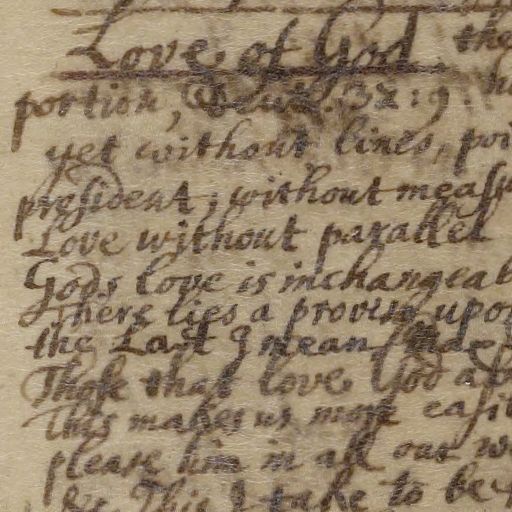 Love of God. the
portion, Deut. 32:9. h
yet without lines, poi
president; without measu
Love without parallel
Gods love is inchangeab
There lies a proviso upon
the Last I mean
Those that love God a
This makes us more easi
please him in all our w
&c. This I take to be